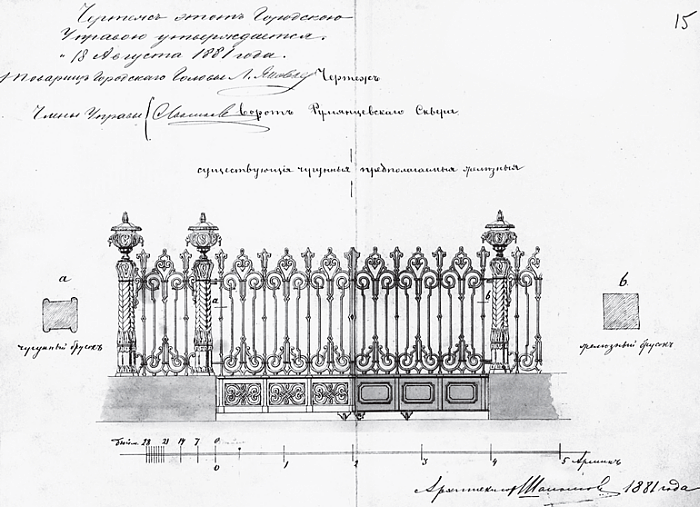 15
Чертежъ этотъ Городскою
Управою утверждается.
„ 18 Августа 1881 года.
Товарищъ Городскаго Головы
Чертежъ
Члены Управы
воротъ Румянцевскаго Сквера
существующія чугунныя предполагаемыя желѣзныя
а
в
а
в
чугунный брусокъ
желѣзный брусокъ
28 21 14 7 0
0 1 2 3 4 5 Аршинъ
Архитекторъ 1881 года